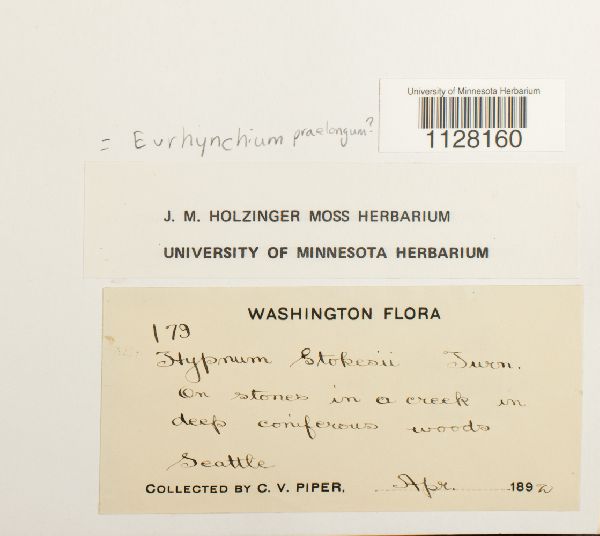 University of Minnesota Herbarium
1128160
= Eurhynchium praelongum?
J. M. HOLZINGER MOSS HERBARIUM
UNIVERSITY OF MINNESOTA HERBARIUM
WASHINGTON FLORA
179
Hypnum Stokesii Turn.
On stones in a creek in
deep coniferous woods
Seattle
COLLECTED BY C. V. PIPER, Apr. 1892